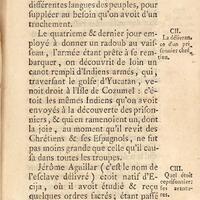 différentes langues des peuples, pour
suppléer au besoin qu'on avoit d'un
truchement.
Le quatrieme & dernier jour em-
ployé à donner un radoub au vais-
seau, l'armée étant prête à se rem-
barquer, on découvrit de loin un
canot rempli d'Indiens armés, qui,
traversant le golfe d'Yucatan, ve-
noit droit à l'Isle de Cozumel : c'é-
toit les mêmes Indiens qu'on avoit
envoyés à la découverte des prison-
niers, & qui en ramenoient un, dont
la joie, au moment qu'il revit des
Chrétiens & ses Espagnols, ne fit
pas moins grande que celle qu'il cau-
sa dans toutes les troupes.
Jérôme Aguillar (c'est le nom de
l'esclave délivré) étoit natif d'E-
cija, où il avoit étudié & reçu
quelques ordres sacrés; étant passé
CII.
La délivran-
ce d'un pri-
sonnier chré-
tien.
CIII.
Quel étoit
ce prisonnier :
ses aventu-
res.